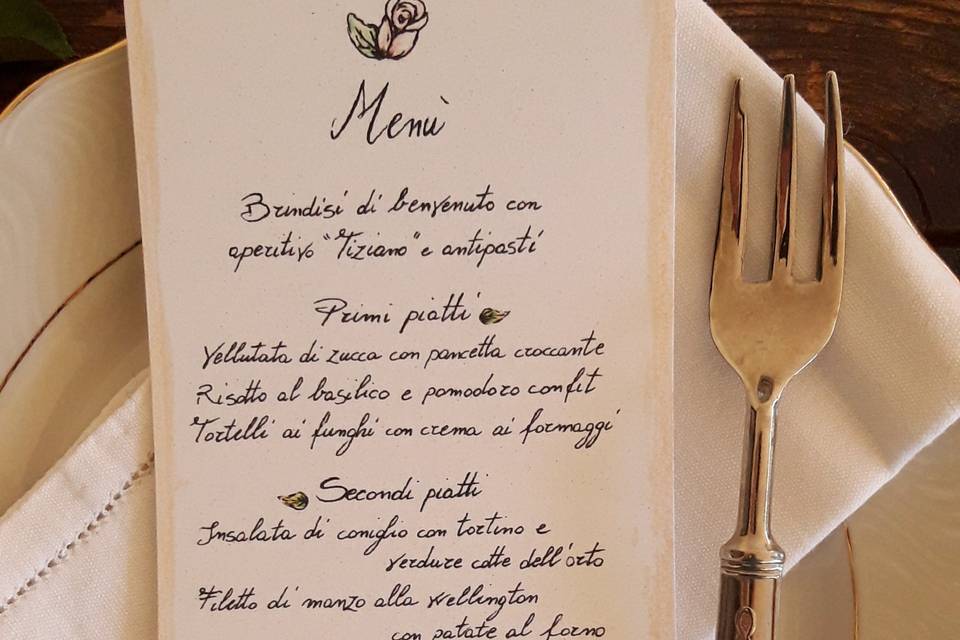 Menù
Brindisi di benvenuto con
aperitivo "Tiziano" e antipasti
Primi piatti
Vellutata di zucca con pancetta croccante
Risotto al basilico e pomodoro confit
Tortelli ai funghi con crema ai formaggi
Secondi piatti
Insalata di coniglio con tortino e
verdure cotte dell'orto
Filetto di manzo alla Wellington
con patate al forno